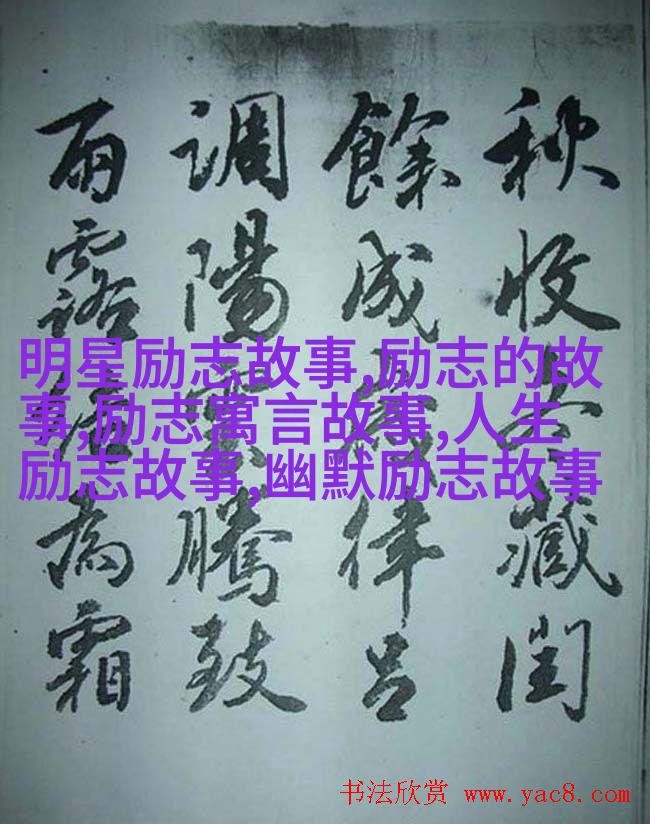 秋收冬藏閏
餘成歲律呂
調陽雲騰致
雨露結為霜
明星励志故事,励志的故
事,励志寓言故事,人生
励志故事,幽默励志故事
书法欣赏 www.yac8.com